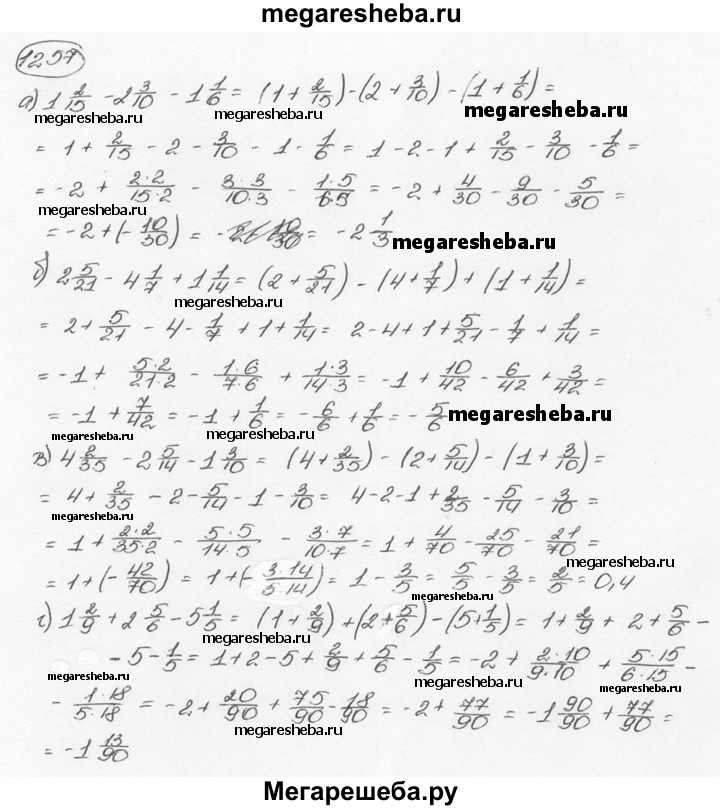 megaresheba.ru
1257
а) 1 2/15 - 2 3/10 - 1 1/6 = (1 + 2/15) - (2 + 3/10) - (1 + 1/6) =
megaresheba.ru megaresheba.ru megaresheba.ru
= 1 + 2/15 - 2 - 3/10 - 1 - 1/6 = 1 - 2 - 1 + 2/15 - 3/10 - 1/6 =
= -2 + 2·2/15·2 - 3·3/10·3 - 1·5/6·5 = -2 + 4/30 - 9/30 - 5/30 =
megaresheba.ru
= -2 + (-10/30) = = -2 1/3
megaresheba.ru
б) 2 5/21 - 4 1/7 + 1 1/14 = (2 + 5/21) - (4 + 1/7) + (1 + 1/14) =
megaresheba.ru
= 2 + 5/21 - 4 - 1/7 + 1 + 1/14 = 2 - 4 + 1 + 5/21 - 1/7 + 1/14 =
= -1 + 5·2/21·2 - 1·6/7·6 + 1·3/14·3 = -1 + 10/42 - 6/42 + 3/42 =
= -1 + 7/42 = -1 + 1/6 = -6/6 + 1/6 = -5/6
megaresheba.ru
megaresheba.ru
в) 4 2/35 - 2 5/14 - 1 3/10 = (4 + 2/35) - (2 + 5/14) - (1 + 3/10) =
megaresheba.ru
= 4 + 2/35 - 2 - 5/14 - 1 - 3/10 = 4 - 2 - 1 + 2/35 - 5/14 - 3/10 =
megaresheba.ru
= 1 + 2·2/35·2 - 5·5/14·5 - 3·7/10·7 = 1 + 4/70 - 25/70 - 21/70 =
megaresheba.ru
= 1 + (-42/70) = 1 + (-3·14/5·14) = 1 - 3/5 = 5/5 - 3/5 = 2/5 = 0,4
megaresheba.ru
г) 1 2/9 + 2 5/6 - 5 1/5 = (1 + 2/9) + (2 + 5/6) - (5 + 1/5) = 1 + 2/9 + 2 + 5/6 -
megaresheba.ru
- 5 - 1/5 = 1 + 2 - 5 + 2/9 + 5/6 - 1/5 = -2 + 2·10/9·10 + 5·15/6·15 -
megaresheba.ru megaresheba.ru megaresheba.ru
- 1·18/5·18 = -2 + 20/90 + 75/90 - 18/90 = -2 + 77/90 = -1 90/90 + 77/90 =
megaresheba.ru
= -1 13/90
Мегарешеба.ру